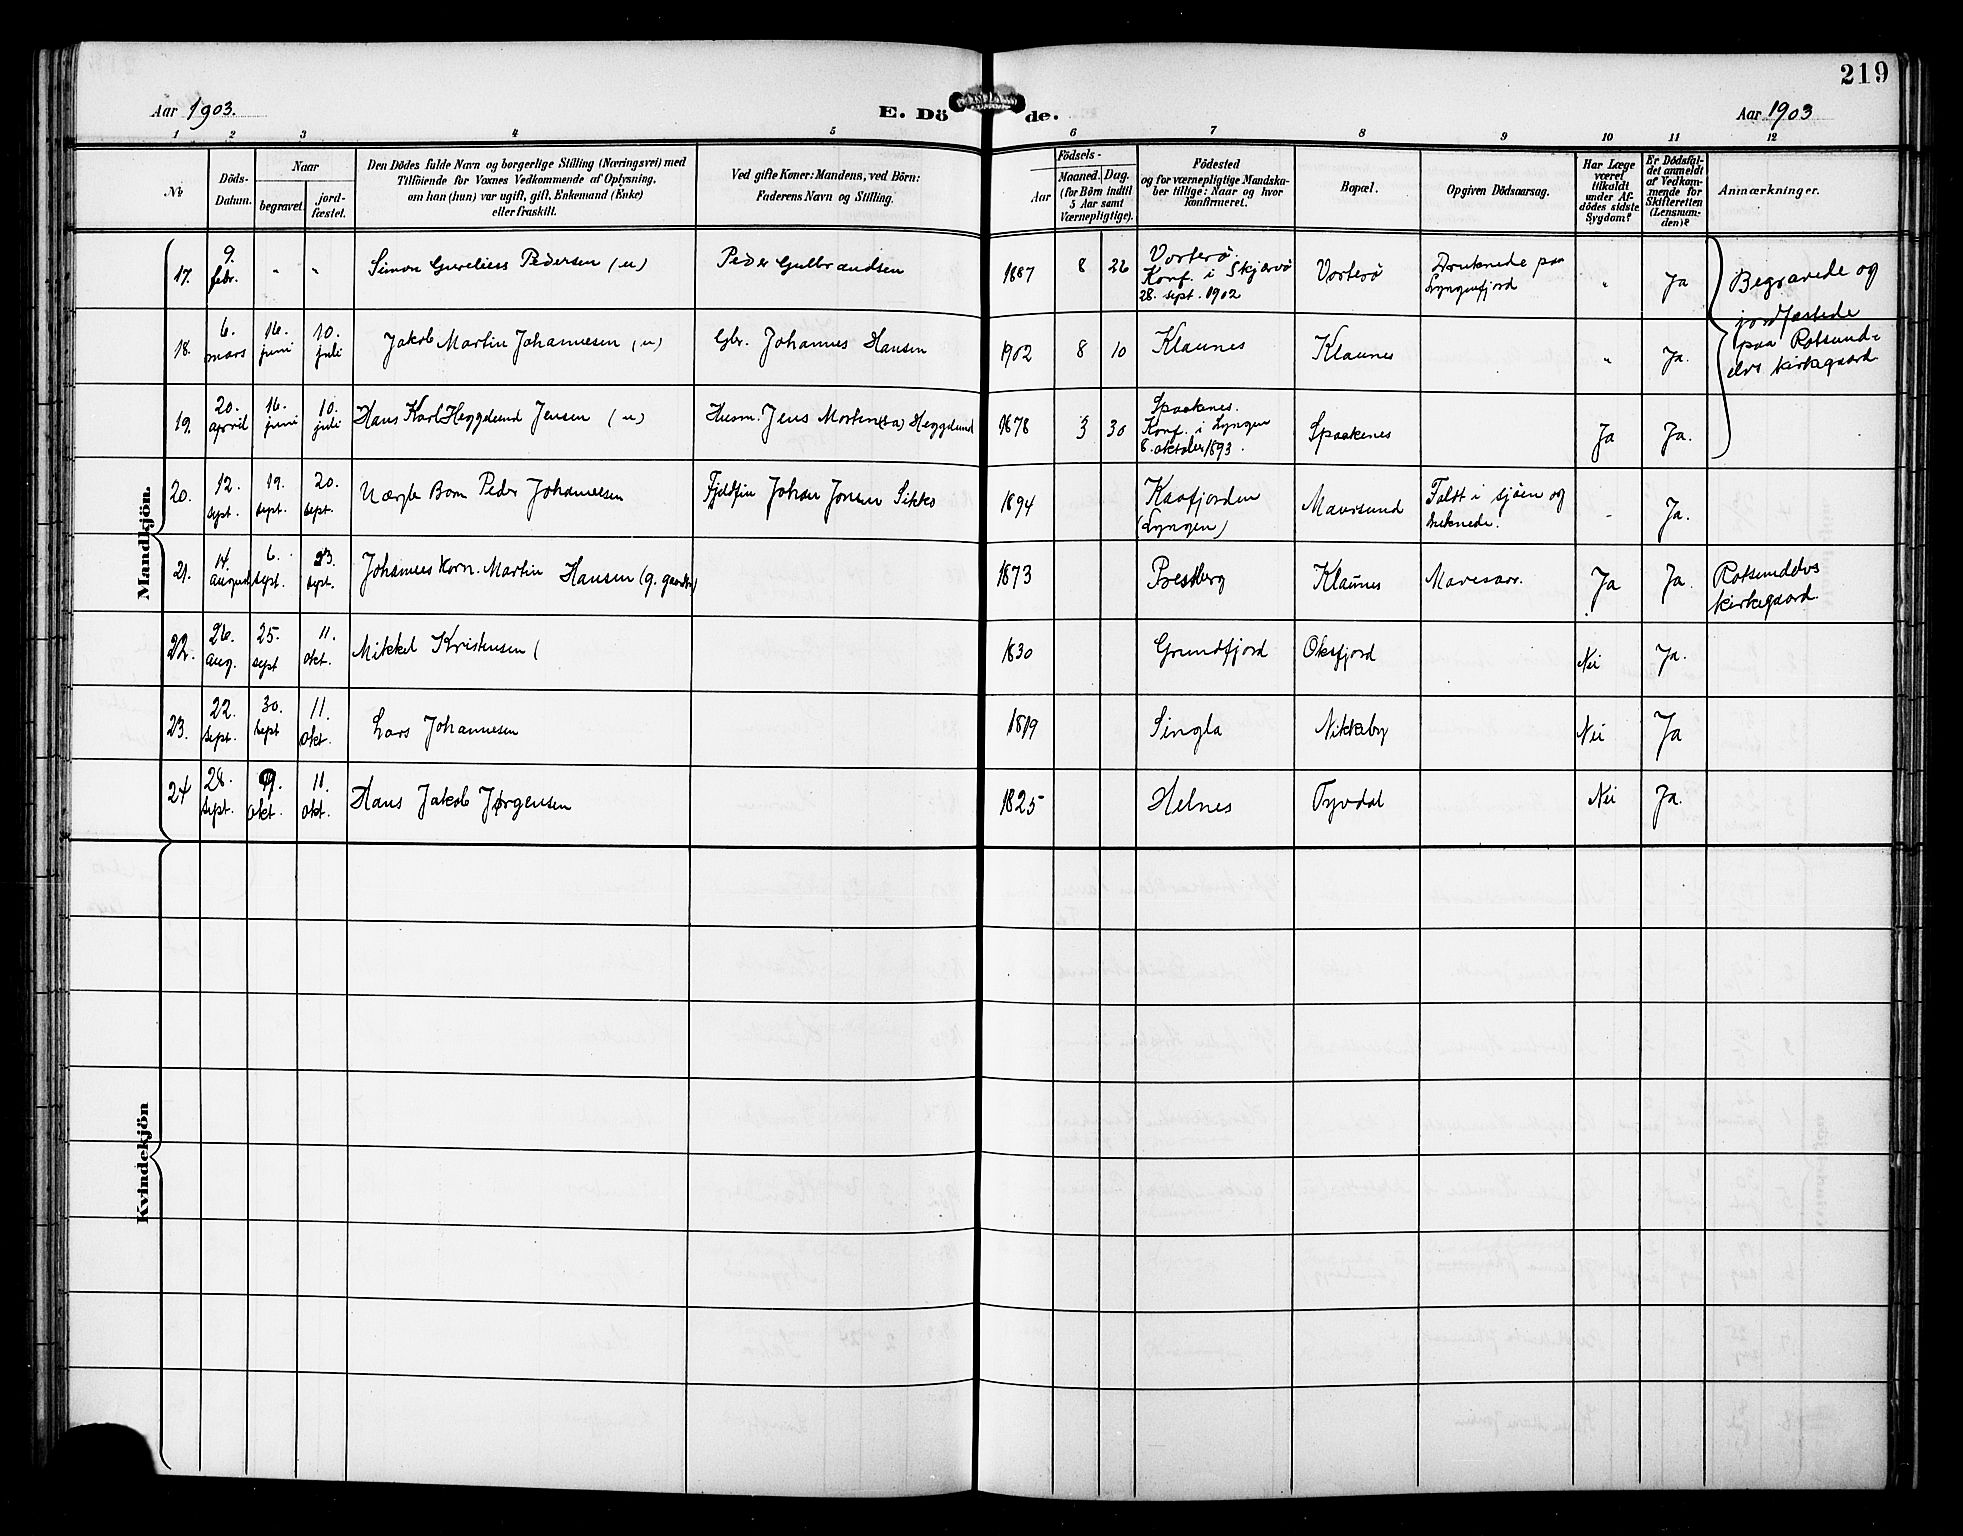 219
Aar 1903.
E. Döde.
Aar 1903
1 2 3 4 5 6 7 8 9 10 11 12
No
Döds-
Datum.
Naar
begravet.
jord-
fæstet.
Den Dödes fulde Navn og borgerlige Stilling (Næringsvei) med
Tilföiende for Voxnes Vedkommende af Oplysning,
om han (hun) var ugift, gift, Enkemand (Enke)
eller fraskilt.
Ved gifte Koner: Mandens, ved Börn:
Faderens Navn og Stilling.
Födsels-
Aar
Maaned.
Dag.
(for Börn indtil
5 Aar samt
Værnepligtige).
Födested
og for værnepligtige Mandska-
ber tillige: Naar og hvor
konfirmeret.
Bopæl.
Opgiven Dödsaarsag.
Har Læge
været
tilkaldt
under Af-
dödes sidste
Sygdom?
Er Dödsfal-
det anmeldt
af Vedkom-
mende for
Skifteretten
(Lensman-
den)?
Anmærkninger.
Mandkjön.
17. 9. febr. " " Simon Pedersen (u) Peder Gulbrandsen 1887 8 26 Vorterø. Konf. i Skjærvø 28. sept. 1902 Vorterø Druknede paa Lyngenfjord " Ja
Begravede og
jordfæstede
paa Rotsund-
elvs kirkegaard
18. 6. mars 16. juni 10. juli Jakob Martin Johannesen (u) Gbr. Johannes Hansen 1902 8 10 Klaunes Klaunes " Ja.
19. 20. april 16. juni 10. juli Hans Karl Heggelund Jensen (u) Husm. Jens Heggelund 1878 3 30 Spaaknes. Konf. i Lyngen 8. oktober 1893. Spaakenes Ja Ja.
20. 12. sept. 19. sept. 20. sept. Peder Johannesen Fjeldfin Johan Sikko 1894 Kaafjorden (Lyngen) Maursund Faldt i sjøen og druknede. - Ja.
21. 14. august 6. sept. 23. sept. Johannes Korn. Martin Hansen 1873 Presteberg Klaunes Mavesaar. Ja Ja. Rotsundelvs kirkegaard.
22. 26. aug. 25. sept 11. okt. Mikkel Kristensen ( 1830 Grundfjord Oksfjord Nei Ja.
23. 22. sept. 30. sept 11. okt. Lars Johannesen 1819 Singla Nikkeby Nei Ja
24 28. sept. 9. okt. 11. okt. Hans Jakob Jørgensen 1825 Helnes Tyvdal Nei Ja.
Kvindekjön